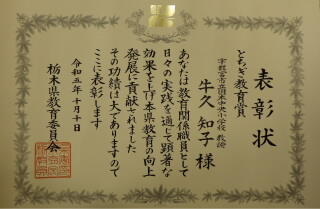 表彰状
とちぎ教育賞
牛久 知子 様
あなたは教育関係職員として
日々の実践を通じて顕著な
効果を上げ本県教育の向上
発展に貢献されました
その功績は大でありますので
ここに表彰します
令和五年十月十日
栃木県教育委員会